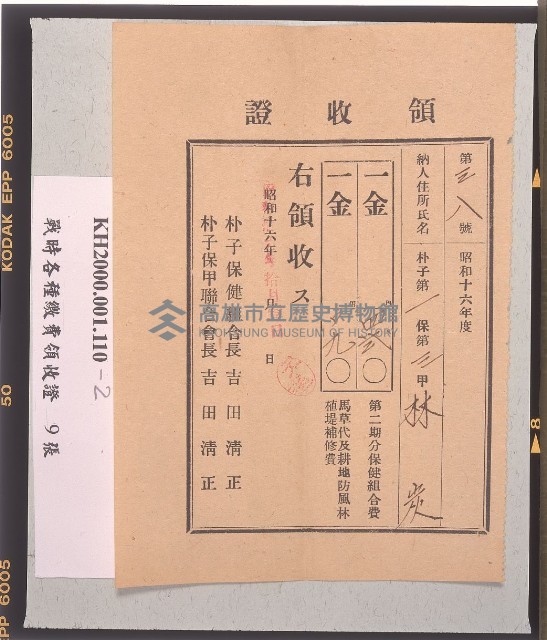 領收證
第三八號 昭和十六年度
納人住所氏名 朴子第一保第三甲 林炭
一金 〇 第二期分保健組合費
一金 九〇 馬草代及耕地防風林
殖堤補修費
右領收ス
昭和十六年 月 日
朴子保健組合長 吉田清正
朴子保甲聯合會長 吉田清正
高雄市立歷史博物館
KAOHSIUNG MUSEUM OF HISTORY
KH2000.001.110-2
戰時各種繳費領收證 9張
KODAK EPP 6005
50
EPP 6005
8